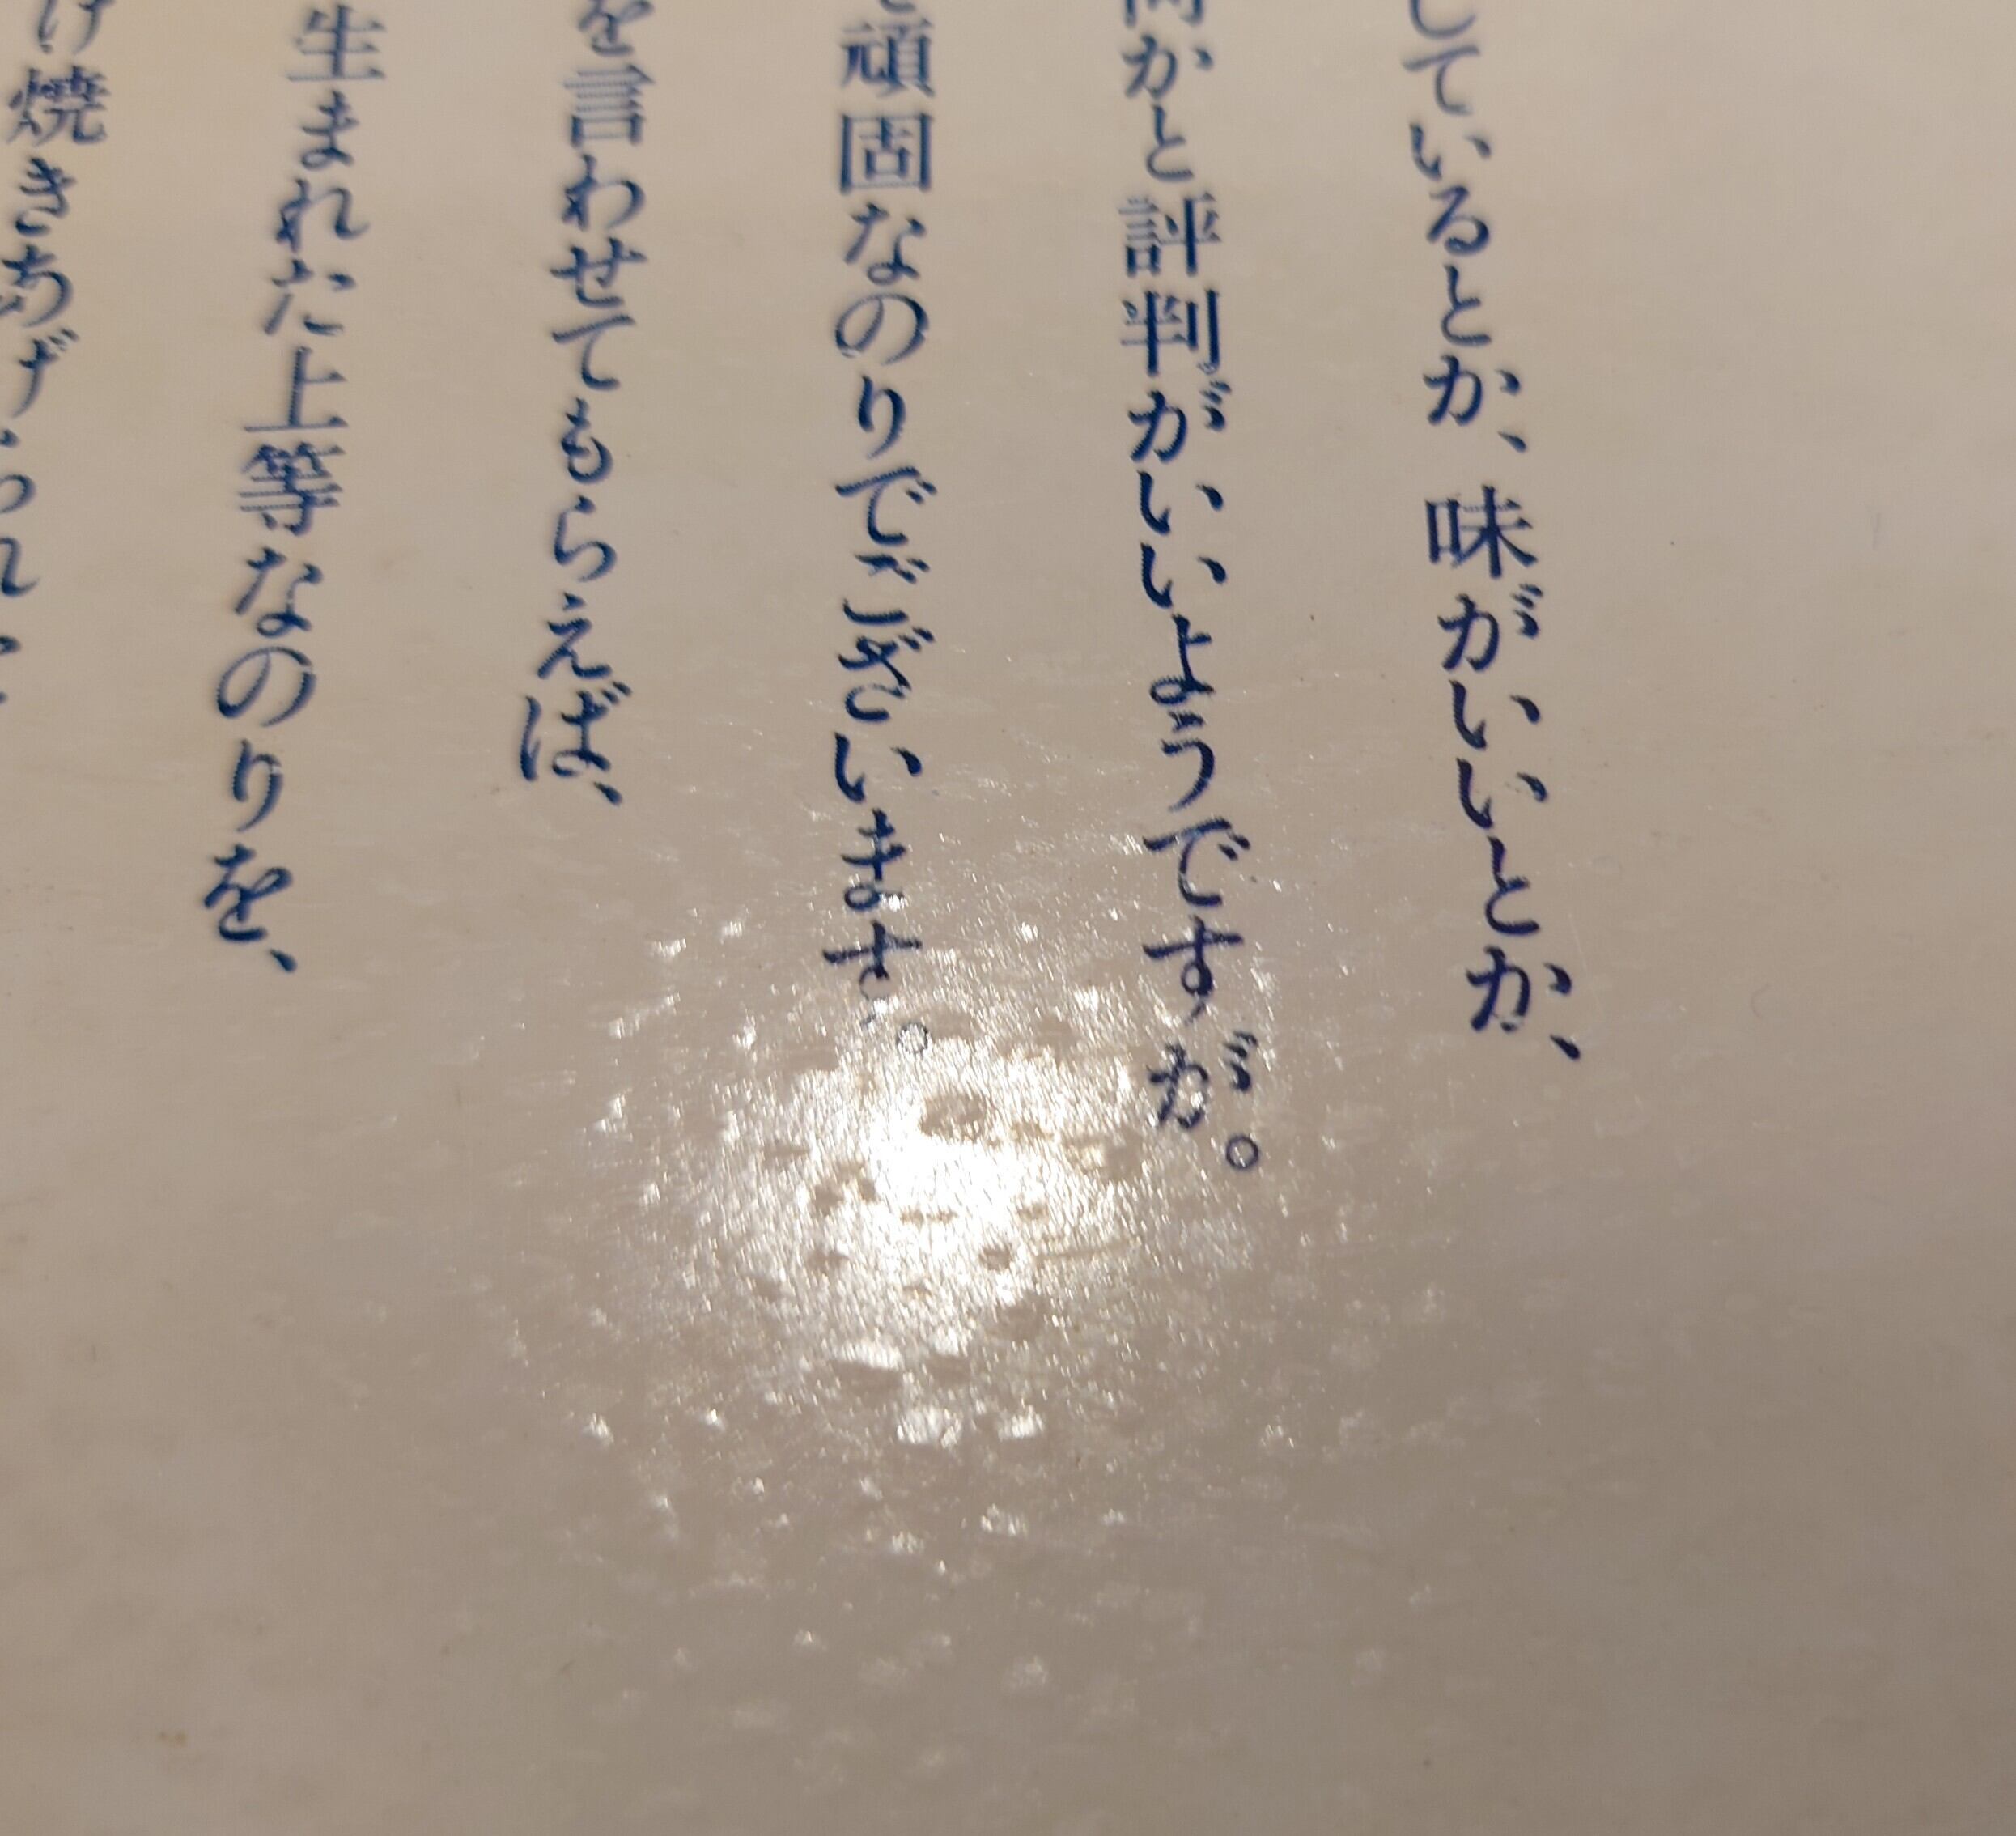 しているとか、味がいいとか、
かと評判がいいようですが。
頑固なのりでございます。
を言わせてもらえば、
生まれた上等なのりを、
焼きあげ